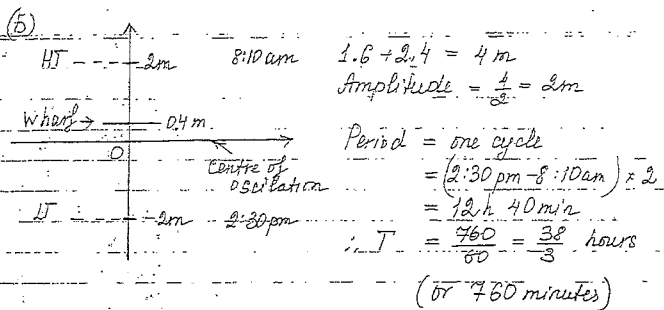 (5)
HT 2m 8:10 am
Wharf → 0.4 m
O
Centre of
oscilation
LT -2m 2:30 pm
1.6 + 2.4 = 4 m
Amplitude = 4/2 = 2m
Period = one cycle
= (2:30 pm - 8:10 am) × 2
= 12 h 40 min
∴ T = 760/60 = 38/3 hours
(or 760 minutes)